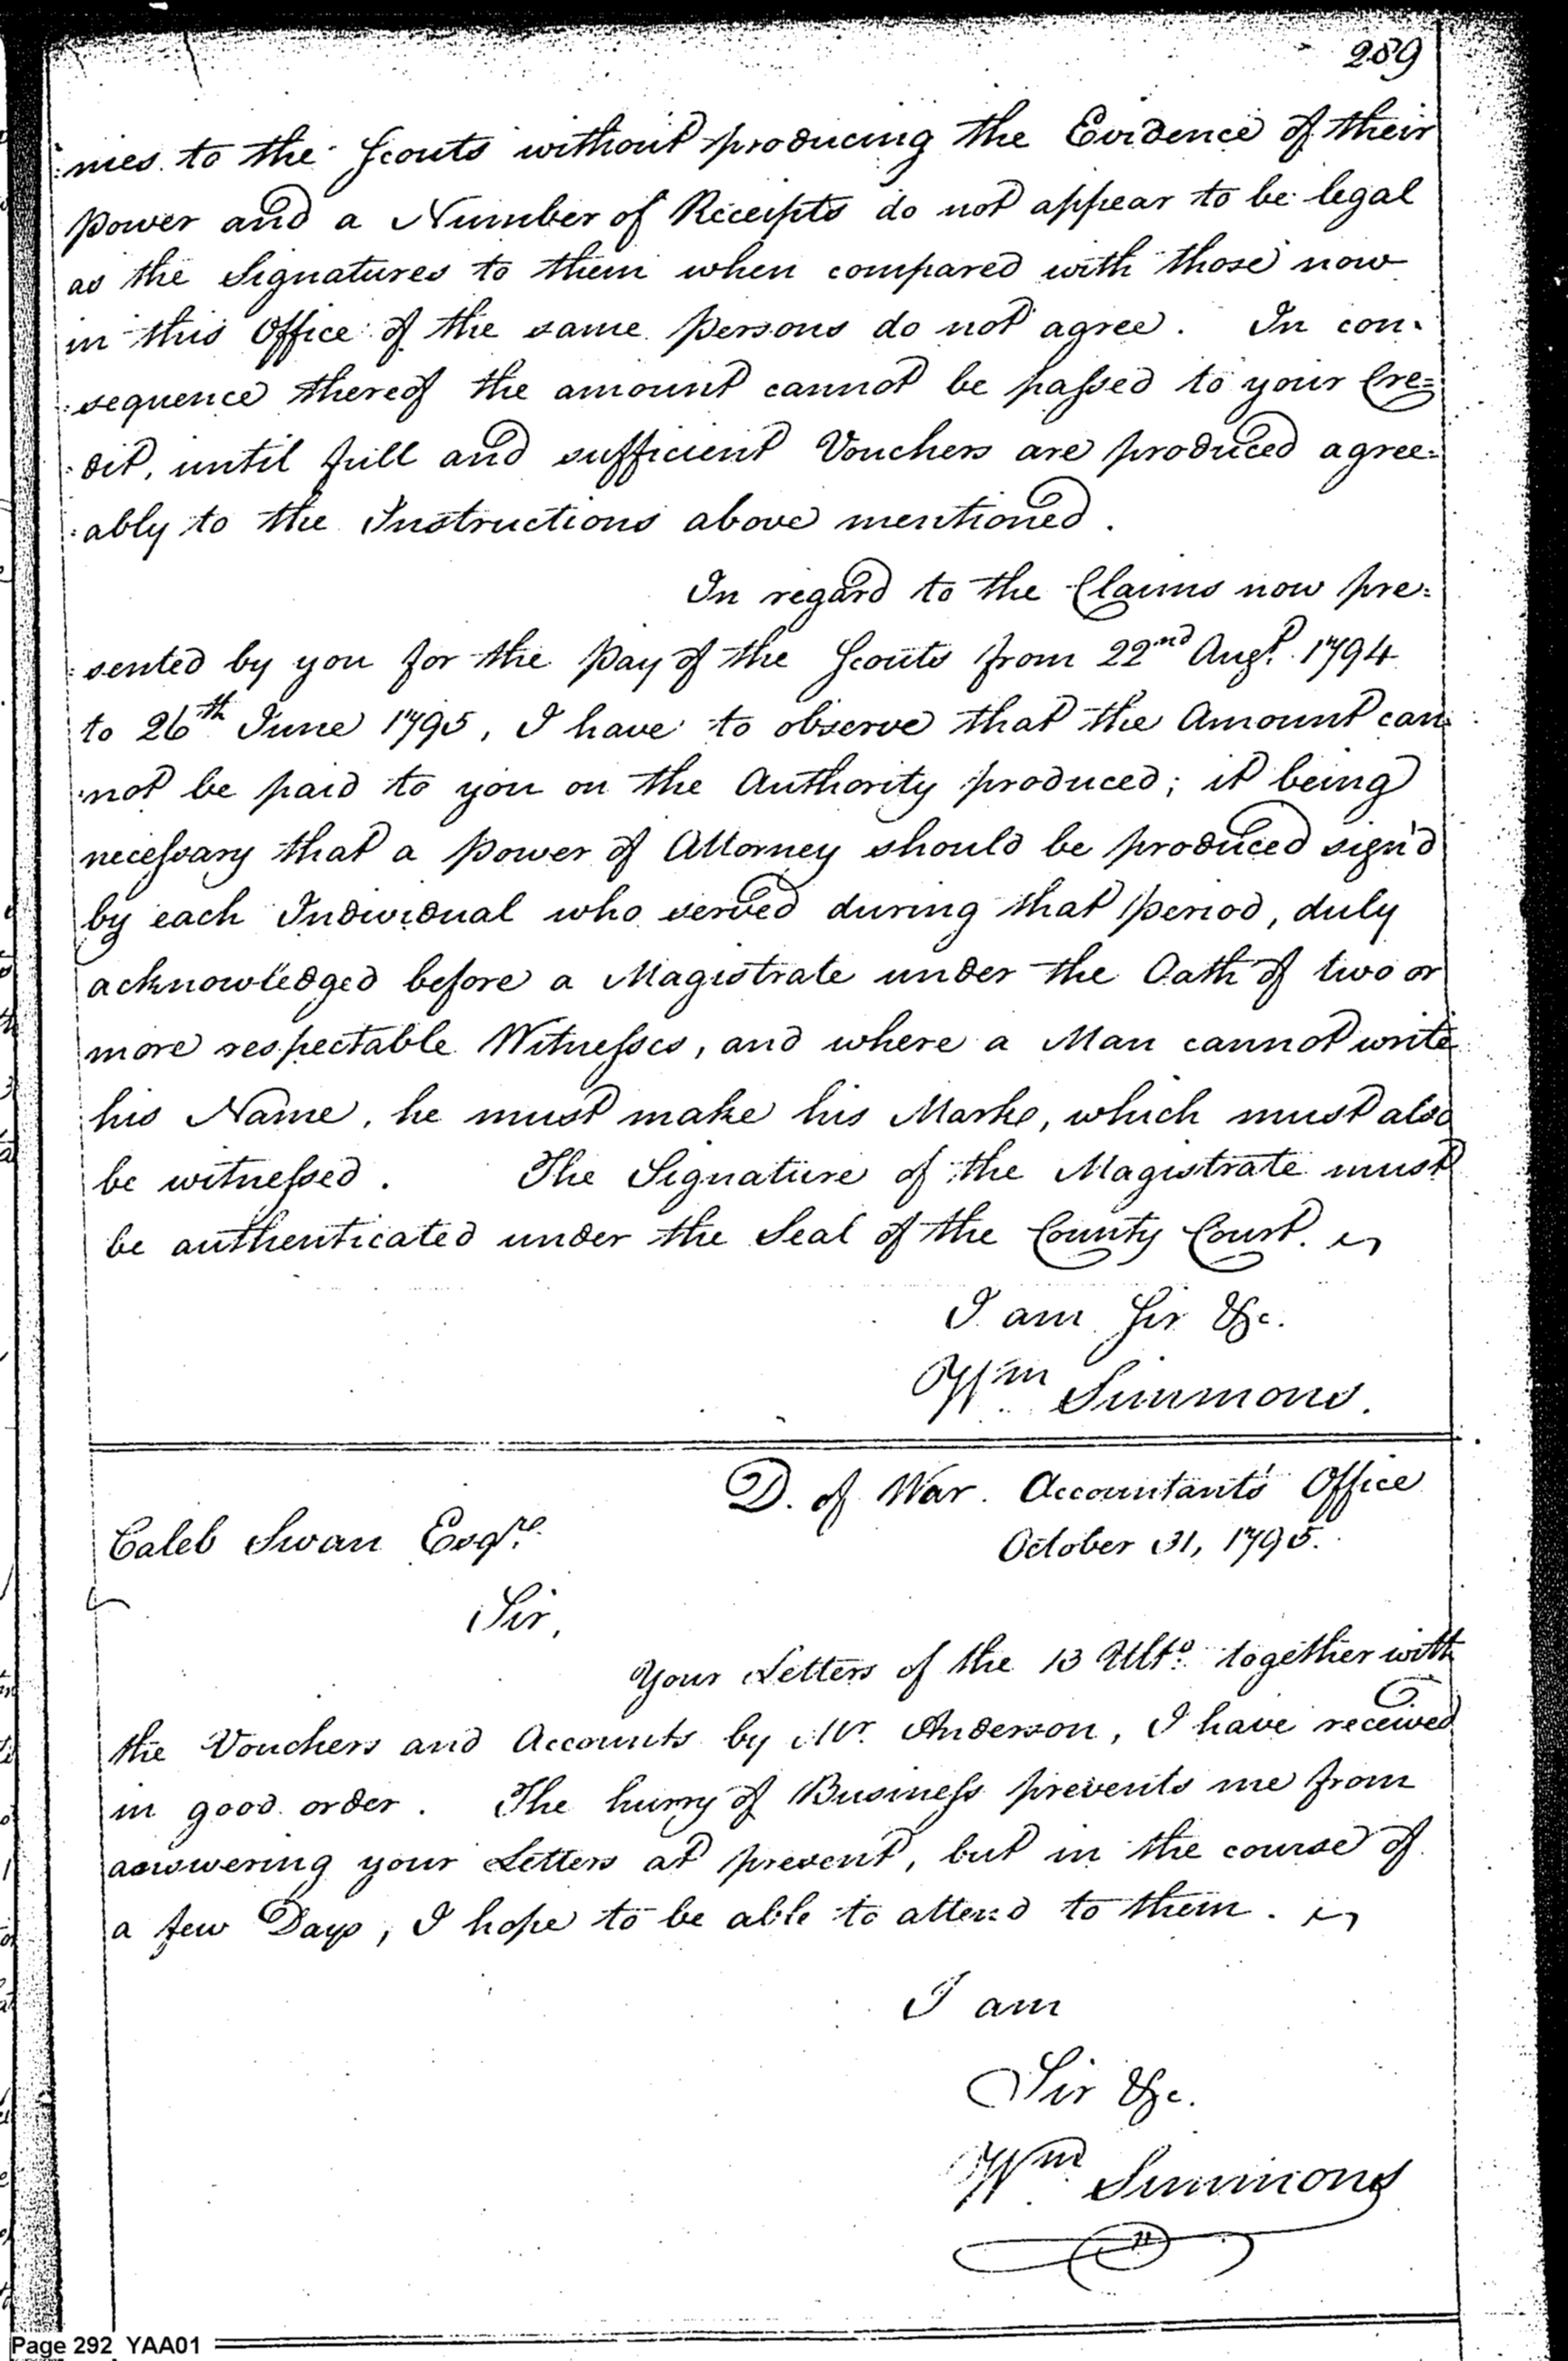 289
:nies to the Scouts without producing the Evidence of their
power and a Number of Receipts do not appear to be legal
as the Signatures to them when compared with those now
in this Office of the same persons do not agree. In con-
:sequence thereof the amount cannot be passed to your Cre=
:dit, until full and sufficient Vouchers are produced agree=
:ably to the Instructions above mentioned.
In regard to the Claims now pre:
:sented by you for the Pay of the Scouts from 22nd Augt. 1794
to 26th June 1795, I have to observe that the Amount can
:not be paid to you on the Authority produced; it being
necessary that a power of Attorney should be produced sign'd
by each Individual who served during that period, duly
acknowledged before a Magistrate under the Oath of two or
more respectable Witnesses, and where a Man cannot write
his Name, he must make his Marke, which must also
be witnessed. The Signature of the Magistrate must
be authenticated under the Seal of the County Court.
I am Sir &c.
Wm Simmons.
D. of War. Accountant's Office
October 31, 1795.
Caleb Swan Esqre.
Sir,
Your Letters of the 13 Ulto. together with
the Vouchers and Accounts by Mr. Anderson, I have received
in good order. The hurry of Business prevents me from
answering your Letters at present, but in the course of
a few Days, I hope to be able to attend to them.
I am
Sir &c.
Wm Simmons
Page 292 YAA01